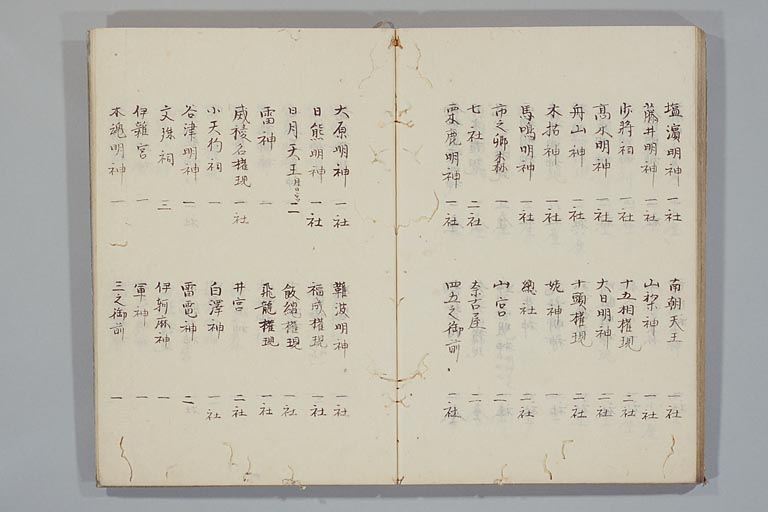 塩濵明神 一社
藤井明神 一社
少将祠 一社
高水明神 一社
舟山神 一社
木拈明神 一社
馬鳴明神 一社
市之御 一
七社 二社
栗鹿明神 一社
南朝天王 一社
山梨神 一社
十五相権現 二社
大日明神 二社
十頭権現 二社
姥神 一
惣社 二社
山宮 二
奈古屋 二
四五之御前 一社
大原明神 一社
日熊明神 一社
日月天王 二
雷神 一
威稜名権現 一社
小天狗祠 一
谷津明神 一
文殊祠 三
伊雜宮 一
木魂明神 一
難波明神 一社
福成権現 一社
飯縄権現 一社
飛龍権現 一社
井宮 二社
白澤神 一社
雷電神 二
伊射麻神 一
軍神 一
三之御前 一